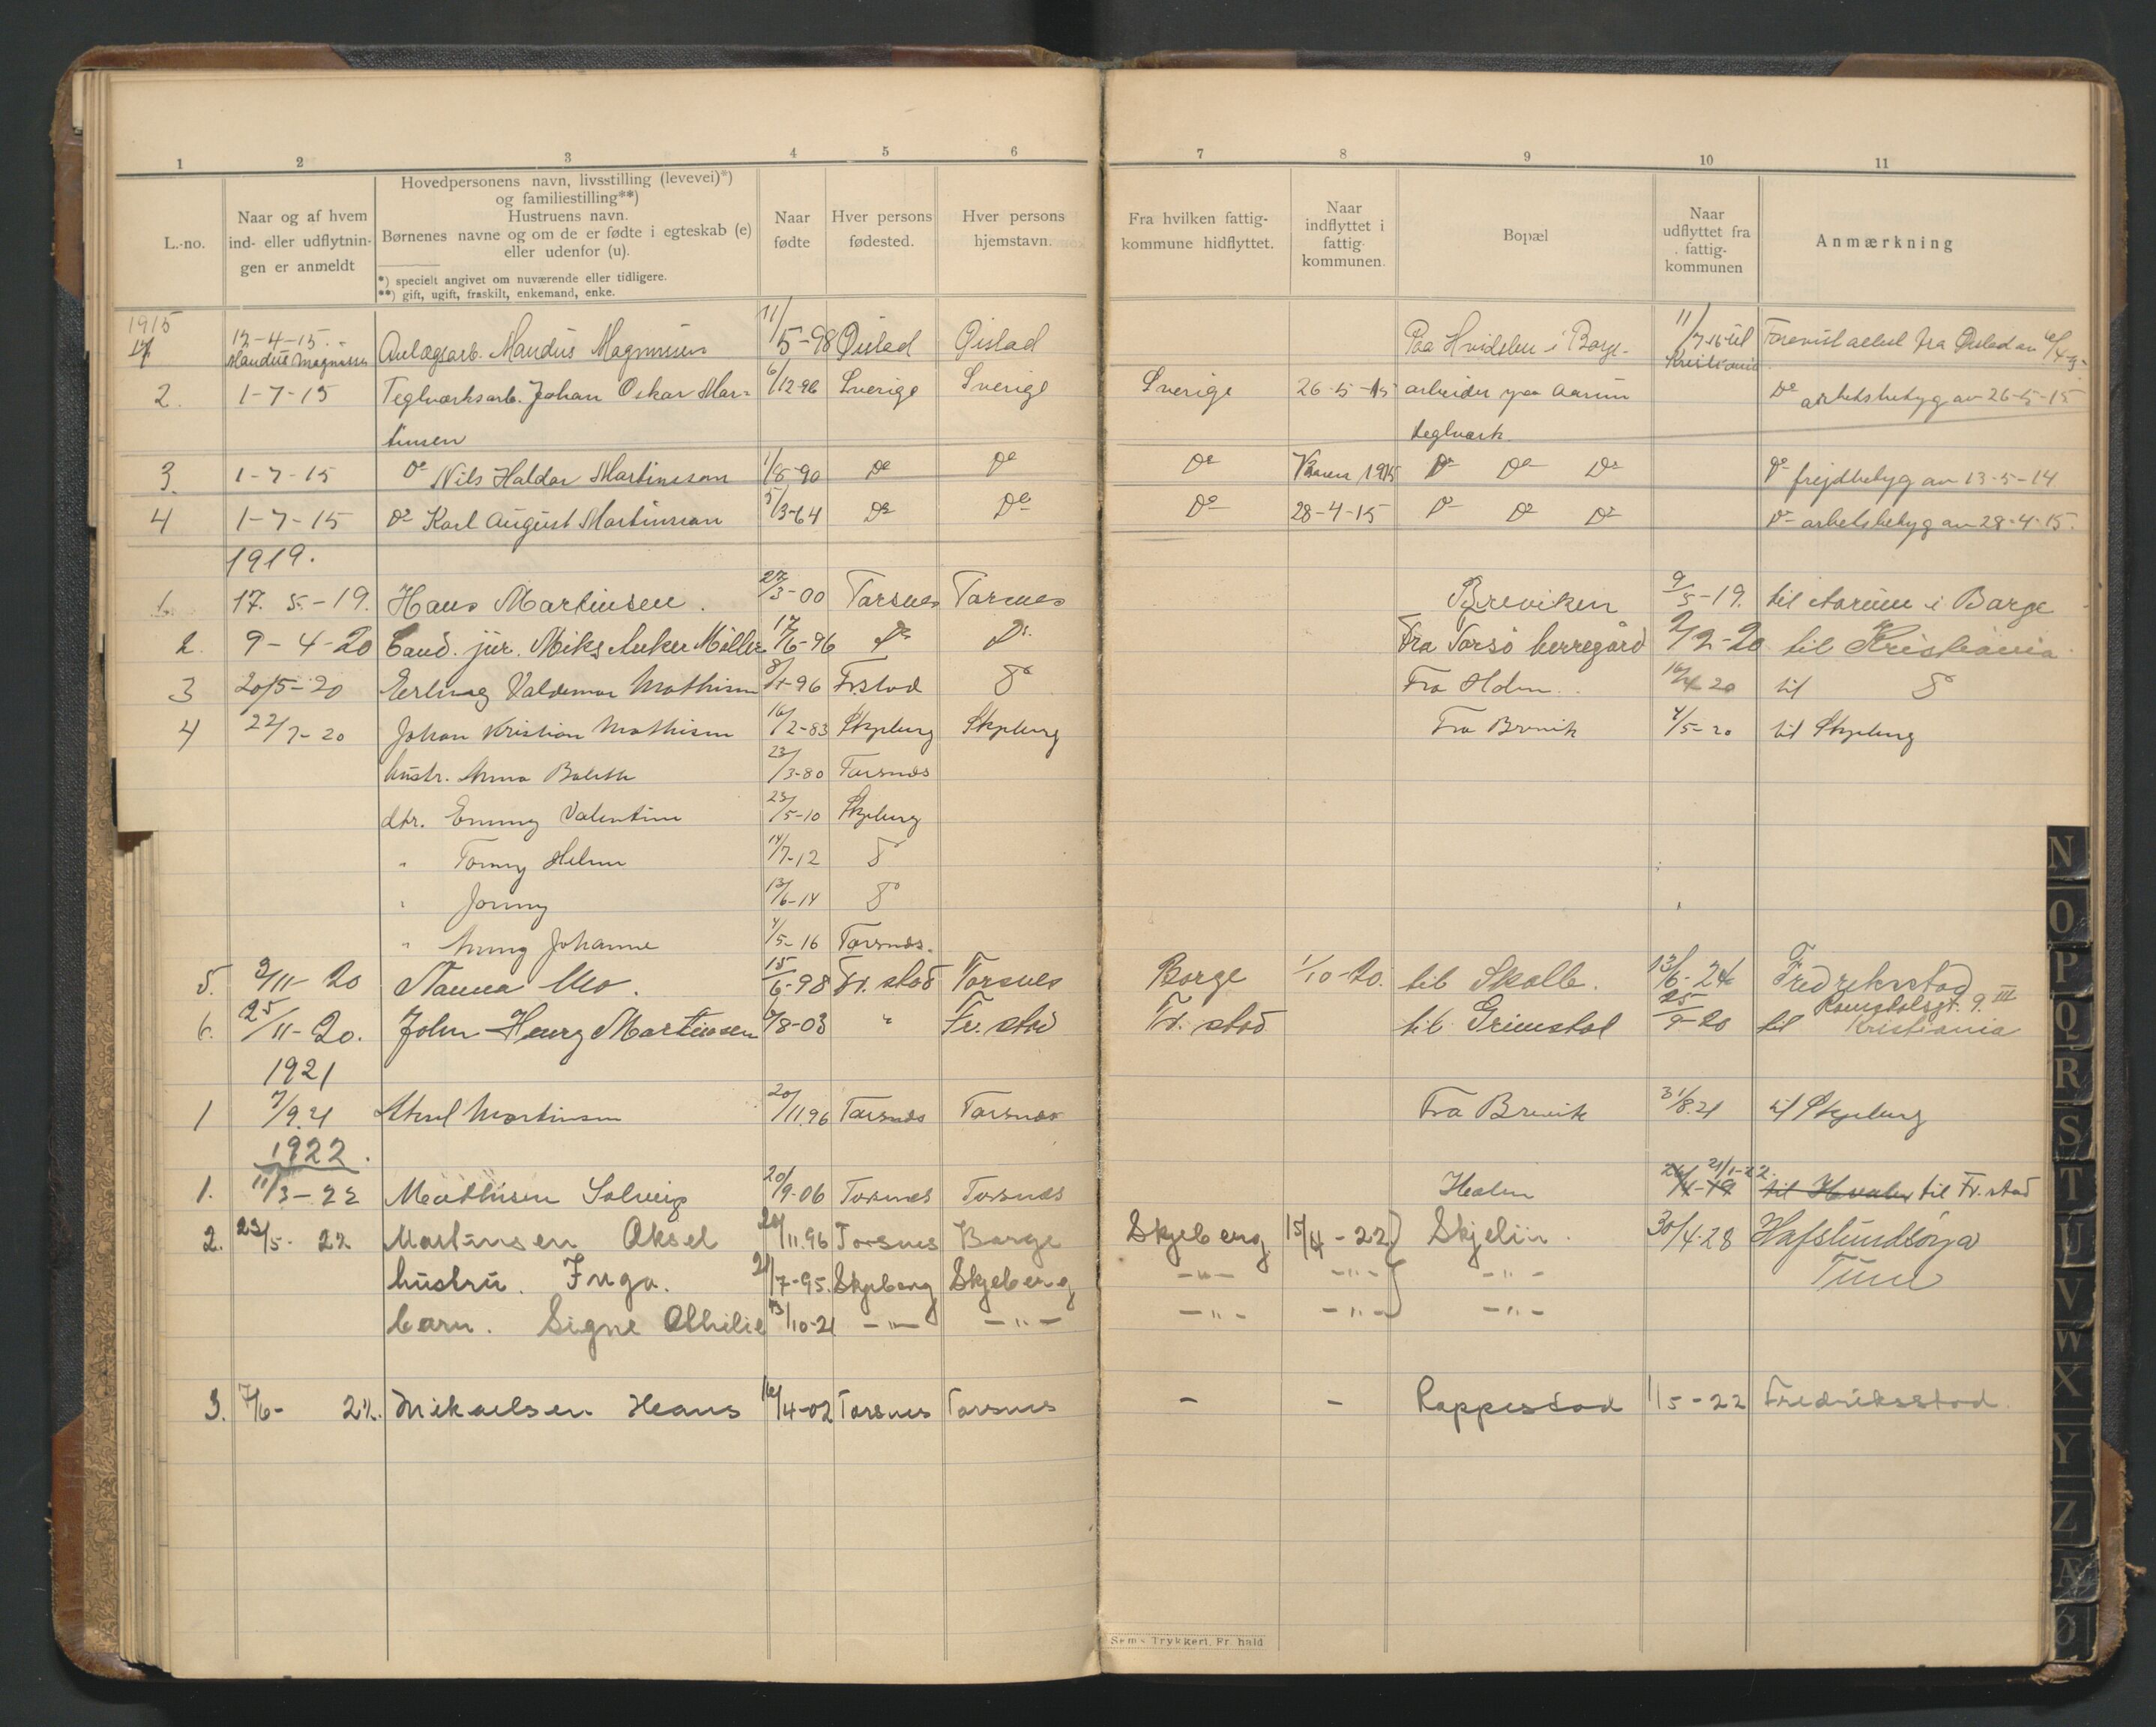 1 2 3 4 5 6 7 8 9 10 11
L.-no.
Naar og af hvem
ind- eller udflytnin-
gen er anmeldt
Hovedpersonens navn, livsstilling (levevei)*)
og familiestilling**)
Hustruens navn.
Børnenes navne og om de er fødte i egteskab (e)
eller udenfor (u).
*) specielt angivet om nuværende eller tidligere.
**) gift, ugift, fraskilt, enkemand, enke.
Naar
fødte
Hver persons
fødested.
Hver persons
hjemstavn.
Fra hvilken fattig-
kommune hidflyttet.
Naar
indflyttet i
fattig-
kommunen.
Bopæl
Naar
udflyttet fra
fattig-
kommunen
Anmærkning
1915
1 12-4-15. Mandus Magnussen Anlægsarb. Mandus Magnussen 11/5-98 Øislad Øislad Paa Hvidsten i Borge. 11/7-15 til Kristiania Forevist attest fra
2. 1-7-15 Teglværksarb. Johan Oskar Mar- 6/12-96 Sverige Sverige Sverige 26-5-15 arbeider paa Aarum Do arbetsbetyg av 26-5-15
tinsen teglværk.
3. 1-7-15 Do Nils Haldor Martinsson 1/8-90 Do Do Do Vaaren 1915 Do Do Do Do frejdbetyg av 13-5-14
4 1-7-15 Do Karl August Martinsson 5/3-64 Do Do Do 28-4-15 Do Do Do Do arbetsbetyg av 28-4-15.
1919.
1. 17. 5.-19. Hans Martinsen. 27/3-00 Torsnes Torsnes Breviken 9/5-19. til Aarum i Borge
2. 9-4-20 Cand. jur. Niks Anker Møller 17/6-96 Do Do Fra Torsø herregård 2/2-20 til Kristiania
3 20/5-20 Erling Valdemar Mathisen 8/1-96 Frstad Do Fra Holm. 16/4 20 til Do
4 22/7-20 Johan Kristian Mathisen 16/2-83 Skjeberg Skjeberg Fra Brevik 4/5-20 til Skjeberg
hustr. Anna Bolette 23/3-80 Torsnæs
dtr. Emmy Valentine 23/5-10 Skjeberg
" Tomny Helene 14/7-12 Do
" Jonny 13/6-14 Do
" Anny Johanne 4/5-16 Torsnæs.
5. 2/11-20 Nanna Mo. 15/6-98 Fr. stad Torsnes Borge 1/10-20. til Skolle. 13/6-24 Fredrikstad
Romsdalsgt. 9. III
6. 25/11-20. John Henry Martinsen /8-03 " Fr. stad Fr. stad til Grimstol 25/9-20 til Kristiania
1921
1 7/9.21 Aksel Martinsen 20/11.96 Torsnæs Torsnæs Fra Brevik 31/8.21 til Skjeberg
1922.
1. 11/3-22 Mathisen Solveig 20/9-06 Torsnæs Torsnæs Holm 21/1-22 til Hvaler til Fr. stad
2. 23/5-22 Martinsen Aksel 20/11.96 Torsnes Borge Skjeberg 15/4-22 Skjelin. 30/4-28 Hafslundsøya
hustru. Inga. 21/7-95. Skjeberg Skjeberg -"- -"- -"- Tune
barn. Signe Othilie 13/10-21 -"- -"- -"- -"- -"-
3. 7/6-22. Mikaelsen Hans 16/4-02 Torsnes Torsnes - - Rappestad 1/5-22 Fredriksstad.
Sems Trykkeri, Fr.hald
N
O
P
Q
R
S
T
U
V
W
X
Y
Z
Æ
Ø